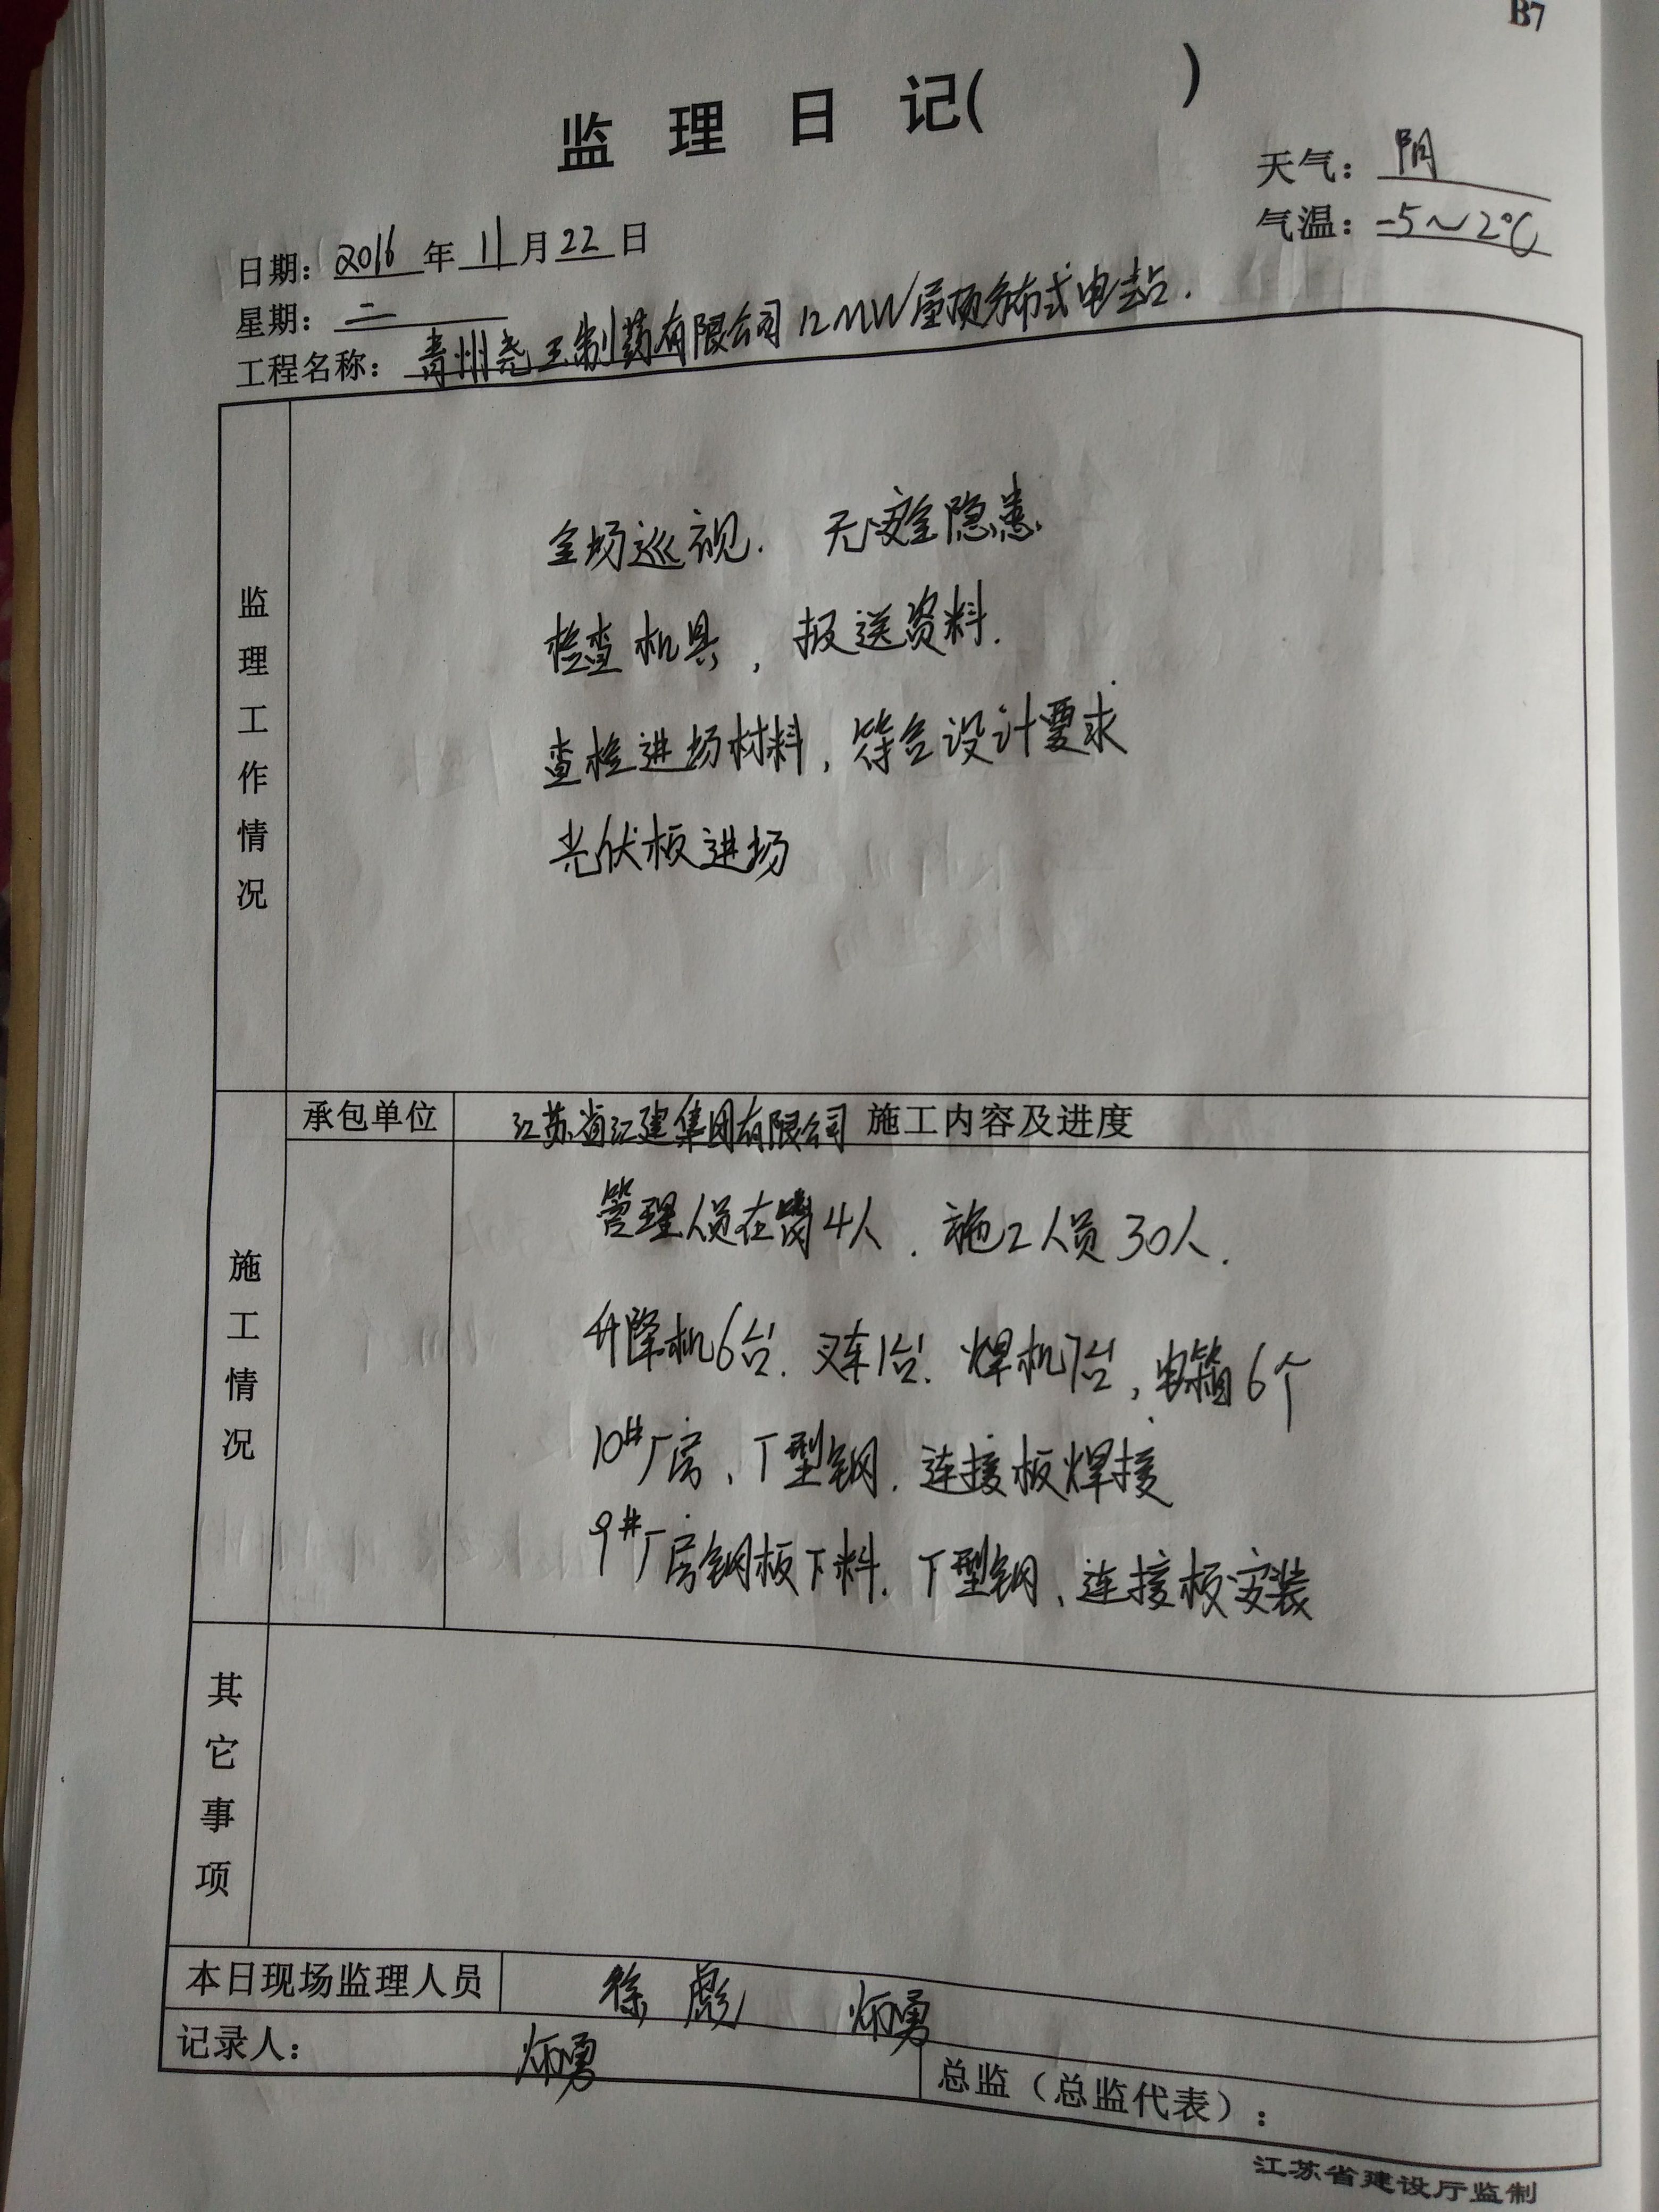 B7
监理日记( )
天气：阴
气温：-5～2℃
日期：2016年11月22日
星期：二
工程名称：青州尧王制药有限公司12MW屋顶分布式电站.
监理工作情况
全场巡视. 无安全隐患.
检查机具，报送资料.
查检进场材料，符合设计要求
光伏板进场
承包单位 江苏省江建集团有限公司 施工内容及进度
施工情况
管理人员在岗4人. 施工人员30人.
升降机6台. 叉车1台. 焊机7台，电箱6个
10#厂房、T型钢. 连接板焊接
9#厂房钢板下料. T型钢、连接板安装
其它事项
本日现场监理人员 徐彪 炳勇
记录人： 炳勇
总监（总监代表）：
江苏省建设厅监制